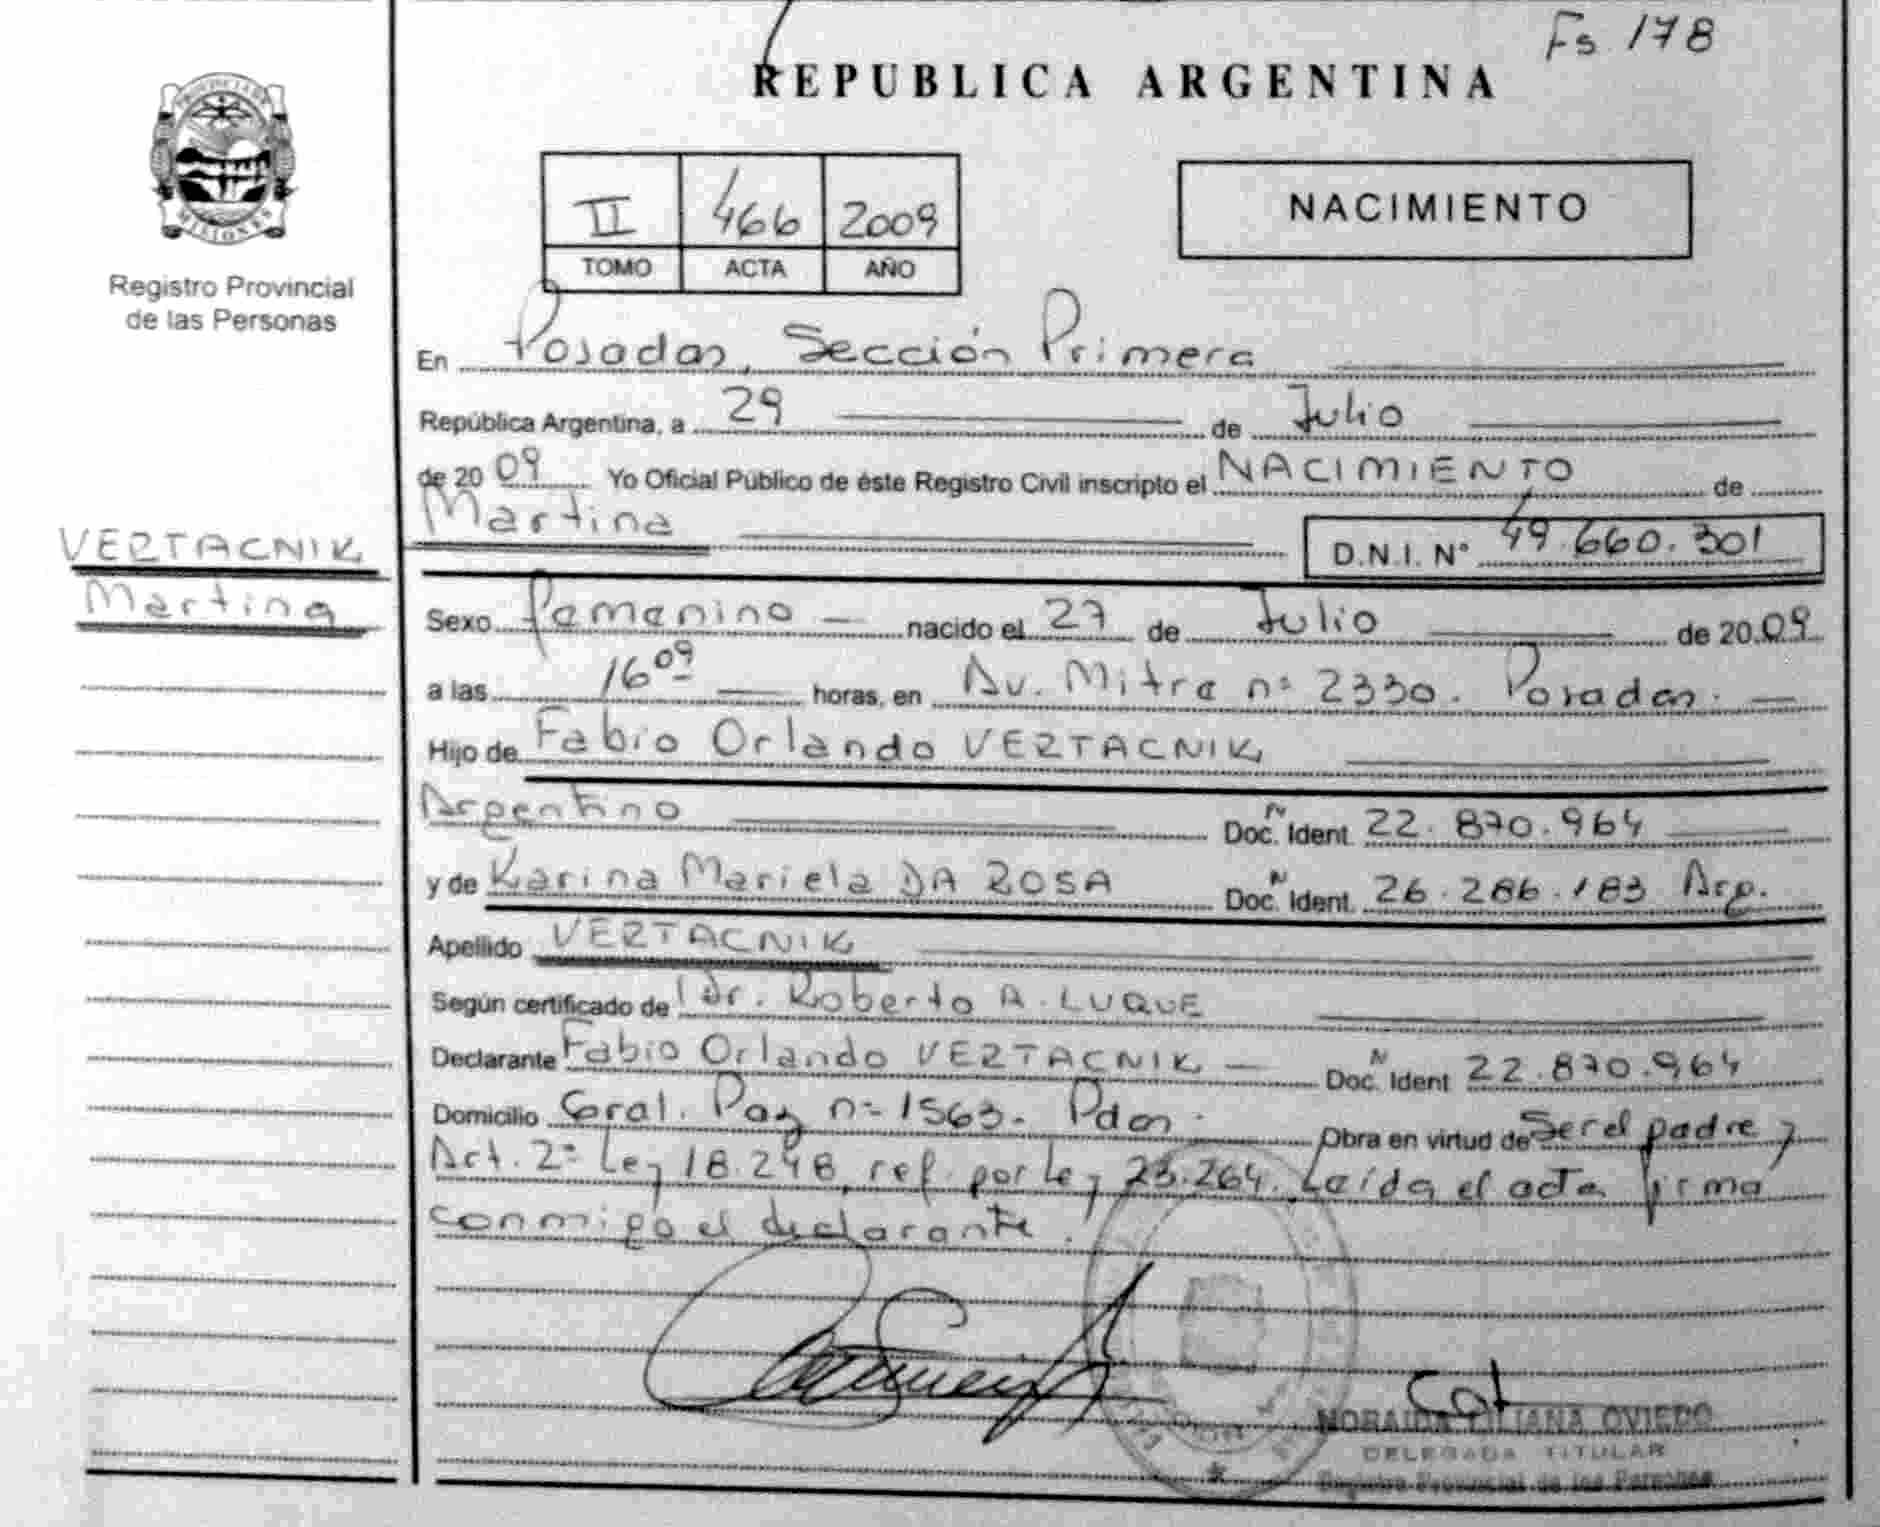 Fs 178
REPUBLICA ARGENTINA
PROVINCIA DE
MISIONES
Registro Provincial
de las Personas
II 466 2009
TOMO ACTA AÑO
NACIMIENTO
En Posadas, Sección Primera
República Argentina, a 29 de Julio
de 20 09 Yo Oficial Público de éste Registro Civil inscripto el NACIMIENTO de
Martina D.N.I. N° 49.660.301
VERTACNIK
Martina
Sexo Femenino nacido el 27 de Julio de 20 09
a las 16 09 horas, en Av. Mitre n° 2330. Posadas.
Hijo de Fabio Orlando VERTACNIK
Argentino Doc. N Ident. 22.870.964
y de Karina Mariela DA ROSA Doc. N Ident. 26.286.183 Arg.
Apellido VERTACNIK
Según certificado de Dr. Roberto A. LUQUE
Declarante Fabio Orlando VERTACNIK Doc. N Ident 22.870.964
Domicilio Gral. Paz n° 1563. Pdas. Obra en virtud de Ser el padre y
Art. 2° Ley 18.248, ref. por Ley 23.264. Leída el acta firma
conmigo el declarante.
MORAIDA LILIANA OVIEDO
DELEGADA TITULAR
Registro Provincial de las Personas